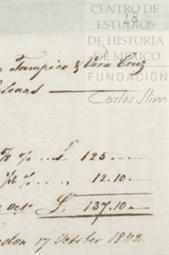 CENTRO DE
ESTUDIOS
DE HISTORIA
DE MÉXICO
FUNDACIÓN
Carlos Slim
Tampico & Vera Cruz
£ 125
12.10
£ 137.10
17 October 1842.